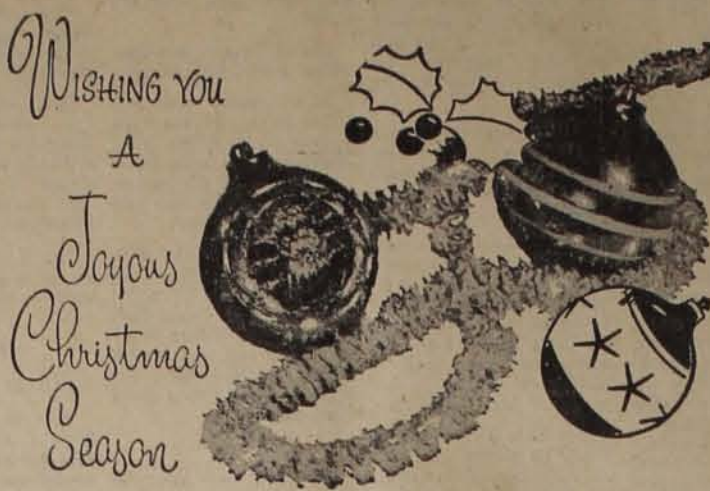 WISHING YOU
A
Joyous
Christmas
Season